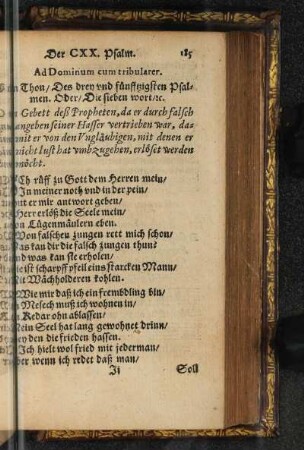 Der CXX. Psalm. 185
Ad Dominum cum tribularer.
Thon/ Des drey vnd fünfftzigsten Psal-
men. Oder/ Die sieben wort/ ꝛc.
Gebett deß Propheten, da er durch falsch
angeben seiner Hasser vertrieben war, das
mit er von den Vngläubigen, mit denen er
nicht lust hat vmbzugehen, erlöset werden
möcht.
Ch rüff zu Gott dem Herren mein/
In meiner noth vnd in der pein/
er mir antwort geben/
Herr erlöß die Seele mein/
on Lügenmäulern eben.
Von falschen zungen rett mich schon/
as kan dir die falsch zungen thun?
nd was kan sie erholen/
ie ist scharpff pfeil eins starcken Mann/
Mit Wachholderen kohlen.
Wie mir daß ich ein frembdling bin/
Mesech muß ich wohnen in/
Kedar ohn ablassen/
ein Seel hat lang gewohnet drinn/
ey den die frieden hassen.
Ich hielt wol fried mit jederman/
ber wenn ich redet daß man/
Ii Soll